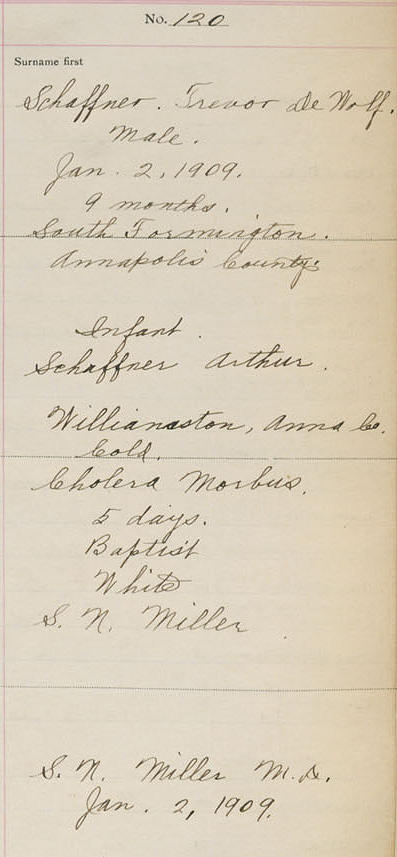 No. 120
Surname first
Schaffner. Trevor De Wolf.
Male.
Jan. 2, 1909.
9 months.
South Formington.
Annapolis County.
Infant.
Schaffner Arthur.
Willianaston, Anna Co.
Cold.
Cholera Morbus.
5 days.
Baptist
White
S. N. Miller
S. N. Miller M.D.
Jan. 2, 1909.